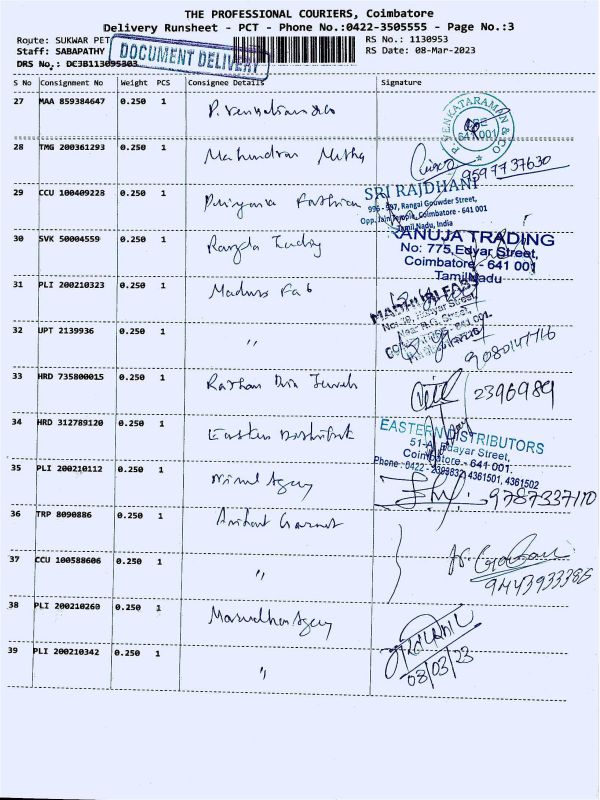 THE PROFESSIONAL COURIERS, Coimbatore
Delivery Runsheet - PCT - Phone No.:0422-3505555 - Page No.:3
Route: SUKWAR PET
RS No.: 1130953
Staff: SABAPATHY
RS Date: 08-Mar-2023
DOCUMENT DELIVERY
DRS No.: DC3B113095303
S No Consignment No Weight PCS Consignee Details Signature
27 MAA 859384647 0.250 1
P. VENKATARAMAN & CO
CBE
641 001
28 TMG 200361293 0.250 1 Mahendran Mitha
9597737630
29 CCU 100409228 0.250 1 Priyana Fashion
SRI RAJDHANI
996 - 997, Rangai Gowder Street,
Opp. Jain Temple, Coimbatore - 641 001
Tamil Nadu, India
30 SVK 50004559 0.250 1
ANUJA TRADING
No: 775, Edyar Street,
Coimbatore - 641 001
TamilNadu
31 PLI 200210323 0.250 1 Madhus Fab
32 UPT 2139936 0.250 1 "
33 HRD 735800015 0.250 1
2396989
34 HRD 312789120 0.250 1 Eastern Distribut
EASTERN DISTRIBUTORS
51-A, Edayar Street,
Coimbatore - 641 001.
Phone : 0422 - 2393832, 4361501, 4361502
35 PLI 200210112 0.250 1 Agency
9787337110
36 TRP 8090886 0.250 1 Arihant Garment
37 CCU 100588606 0.250 1 "
38 PLI 200210260 0.250 1
03/03/23
39 PLI 200210342 0.250 1 "